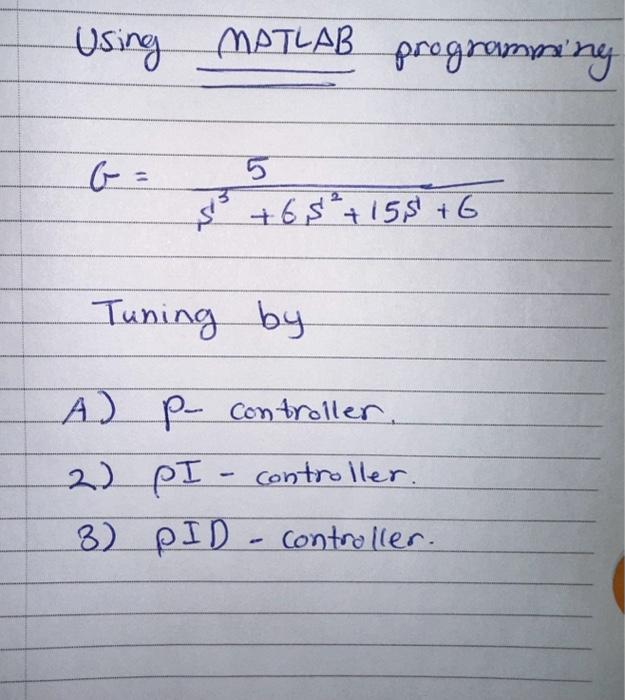 Using MATLAB programming
G = 5
s³ + 6s² + 15s + 6
Tuning by
A) P- controller.
2) PI - controller.
3) PID - controller.